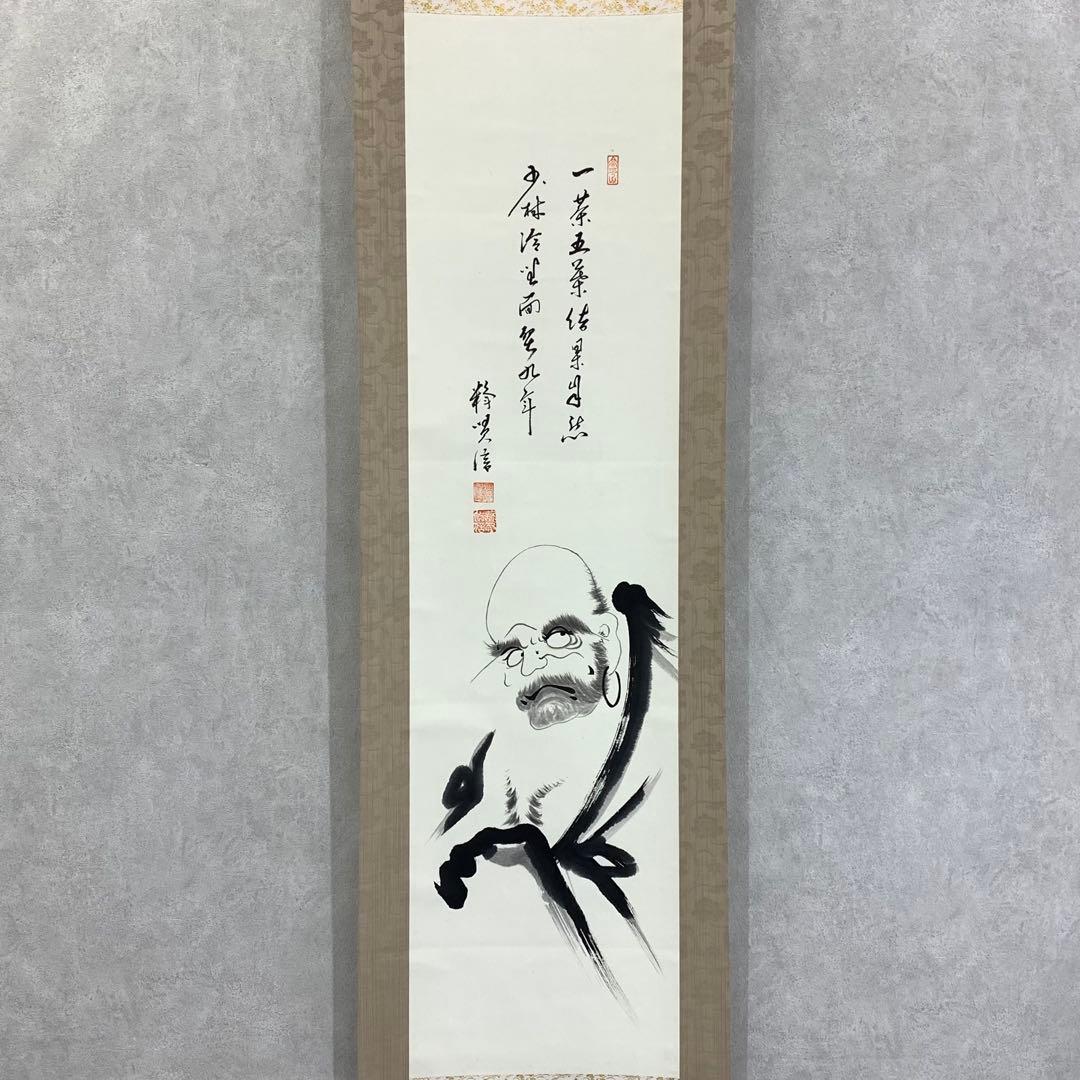 一華五葉結果自然
少林冷坐面壁九年
釋信